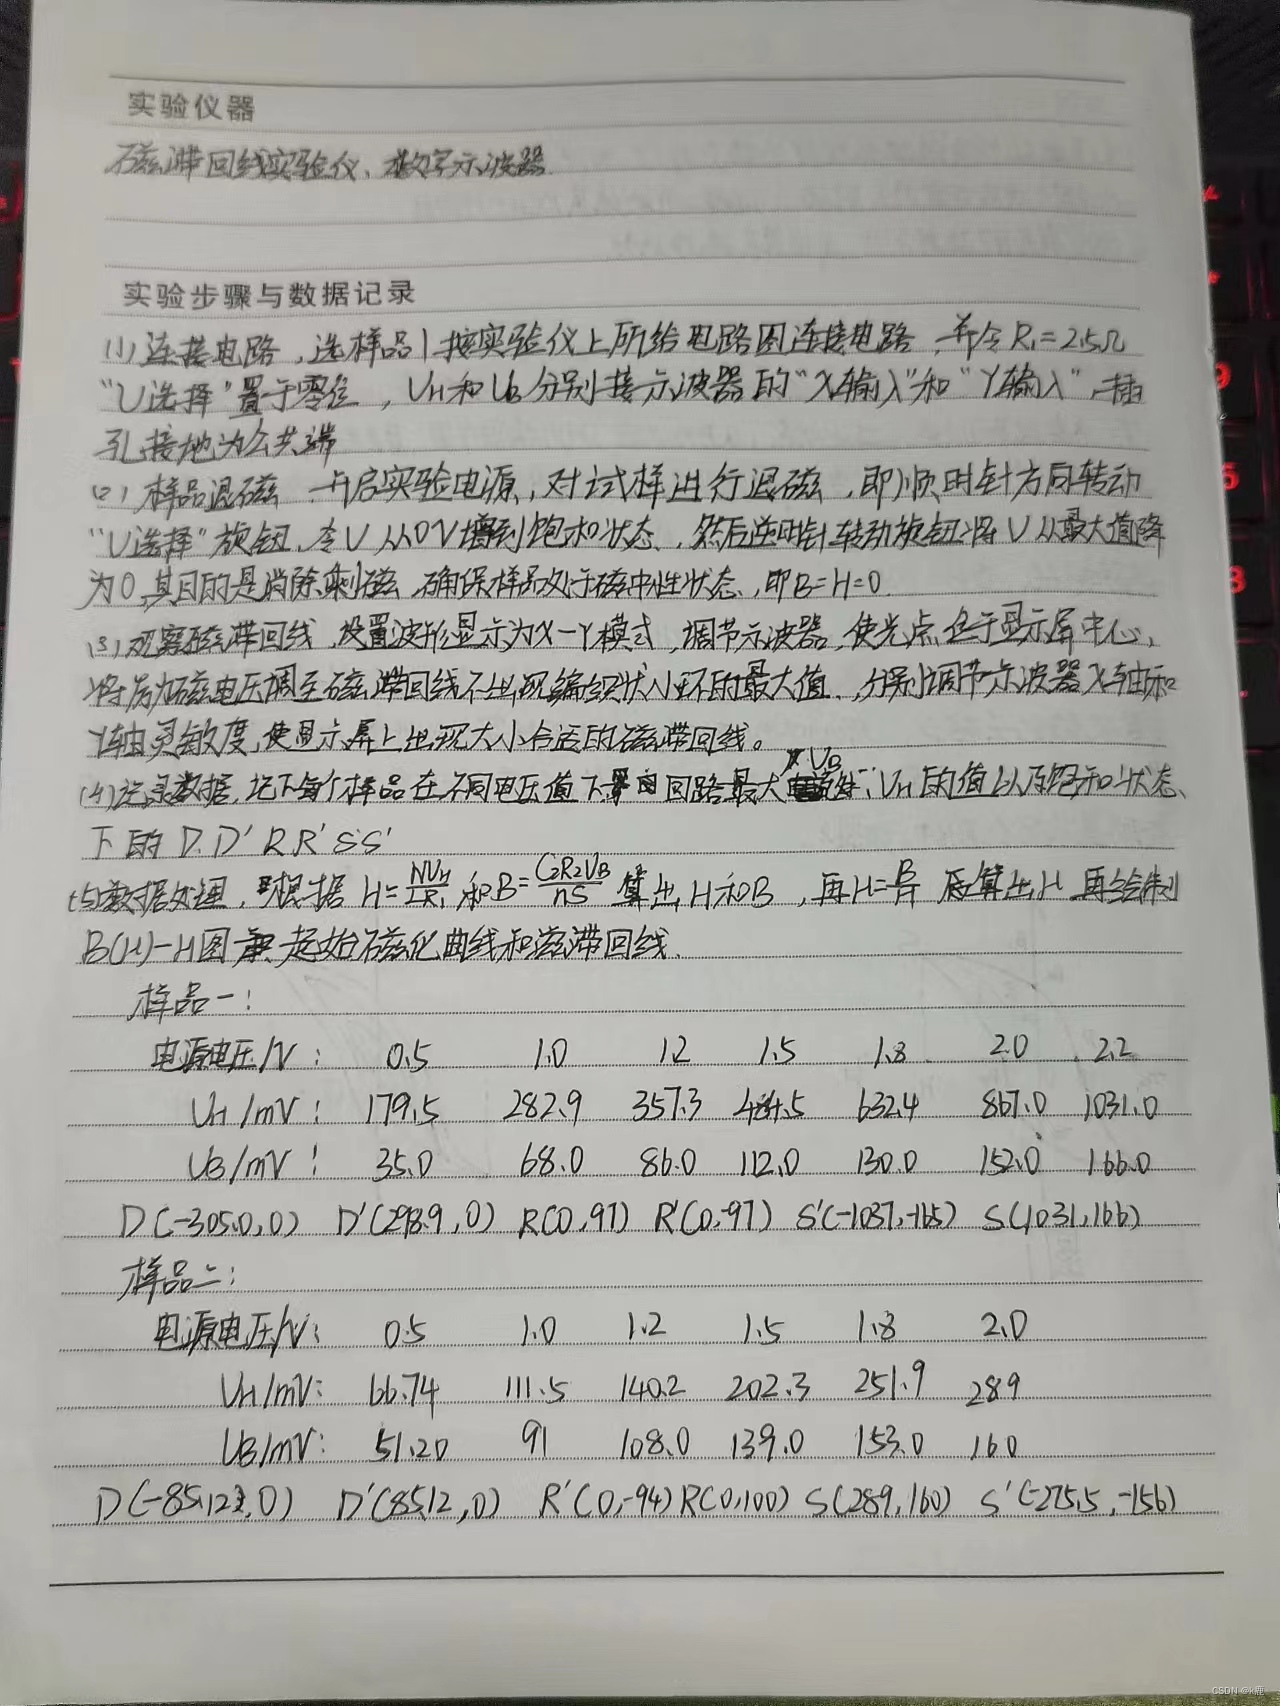 实验仪器
磁滞回线实验仪、数字示波器
实验步骤与数据记录
(1)连接电路,选样品1按实验仪上所给电路图连接电路,并令R₁=2.5Ω
“U选择”置于零位,UH和UB分别接示波器的“X输入”和“Y输入”,插
孔接地为公共端
(2)样品退磁 开启实验电源,对试样进行退磁,即顺时针方向转动
“U选择”旋钮,令U从0V增到饱和状态,然后逆时针转动旋钮将U从最大值降
为0,其目的是消除剩磁,确保样品处于磁中性状态,即B=H=0.
(3)观察磁滞回线,设置波形显示为X-Y模式,调节示波器,使光点位于显示屏中心,
将励磁电压调至磁滞回线不出现编织状小环的最大值,分别调节示波器X轴和
Y轴灵敏度,使显示屏上出现大小合适的磁滞回线。
(4)记录数据,记下每个样品在不同电压值下回路最大UB、UH的值以及饱和状态
下的D.D'RR'SS'
(5)数据处理,根据H=NUH/LR₁和B=C₂R₂UB/nS算出H和B,再H=B/H 算出H 再绘制
B(H)-H图 起始磁化曲线和磁滞回线.
样品一:
电源电压/V: 0.5 1.0 1.2 1.5 1.8 2.0 2.2
UH/mV: 179.5 282.9 357.3 484.5 632.4 867.0 1031.0
UB/mV: 35.0 68.0 86.0 112.0 130.0 152.0 166.0
D(-305.0,0) D'(298.9,0) R(0,97) R'(0,-97) S'(-1037,-165) S(1031,166)
样品二:
电源电压/V: 0.5 1.0 1.2 1.5 1.8 2.0
UH/mV: 66.74 111.5 140.2 202.3 251.9 289
UB/mV: 51.20 91 108.0 139.0 153.0 160
D(-85.12,0) D'(85.12,0) R'(0,-94) R(0,100) S(289,160) S'(-275.5,-156)